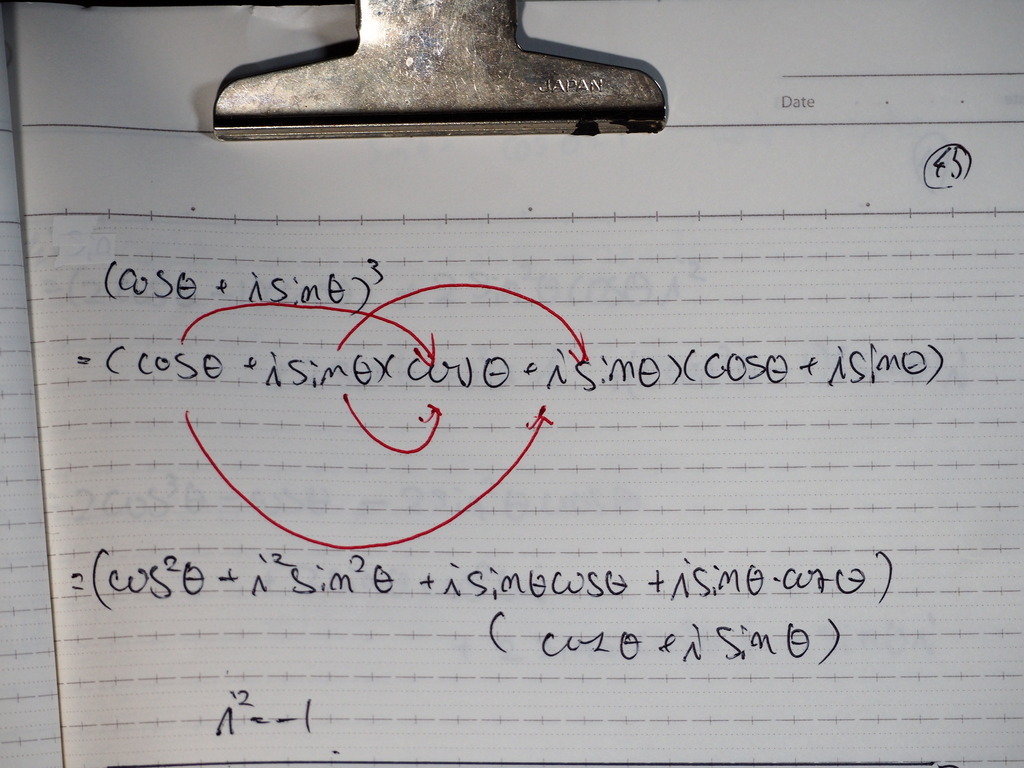 JAPAN
Date
(cosθ + i sinθ)³
= (cosθ + i sinθ)(cosθ + i sinθ)(cosθ + i sinθ)
= (cos²θ + i² sin²θ + i sinθ cosθ + i sinθ · cosθ)
(cosθ + i sinθ)
i² = -1